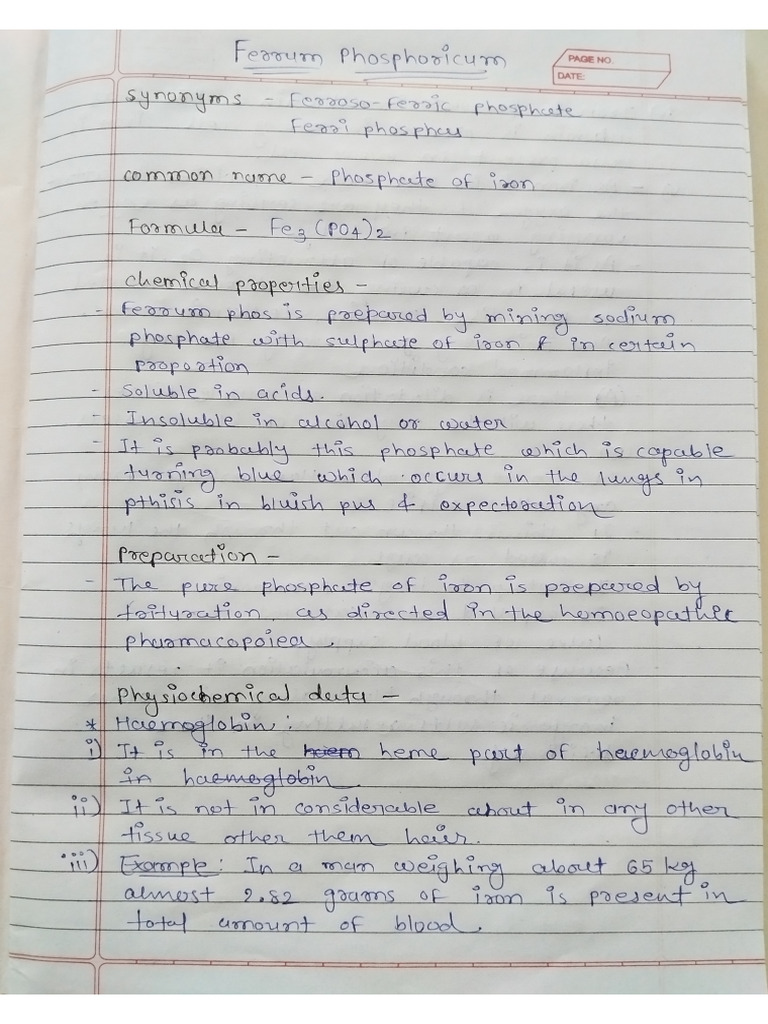 Ferrum Phosphoricum
PAGE NO.
DATE:
Synonyms - Ferroso-Ferric phosphate
Ferri phosphas
Common name - Phosphate of iron
Formula - Fe3(PO4)2
Chemical properties -
- Ferrum phos is prepared by mining sodium
phosphate with sulphate of iron & in certain
proportion
- Soluble in acids.
- Insoluble in alcohol or water
- It is probably this phosphate which is capable
turning blue which occurs in the lungs in
pthisis in bluish pus & expectoration
Preparation -
- The pure phosphate of iron is prepared by
trituration as directed in the homoeopathic
pharmacopoiea.
Physiochemical data -
* Haemoglobin:
i) It is in the haem heme part of haemoglobin
in haemoglobin
ii) It is not in considerable about in any other
tissue other them hair.
iii) Example: In a man weighing about 65 kg
almost 2.82 grams of iron is present in
total amount of blood.